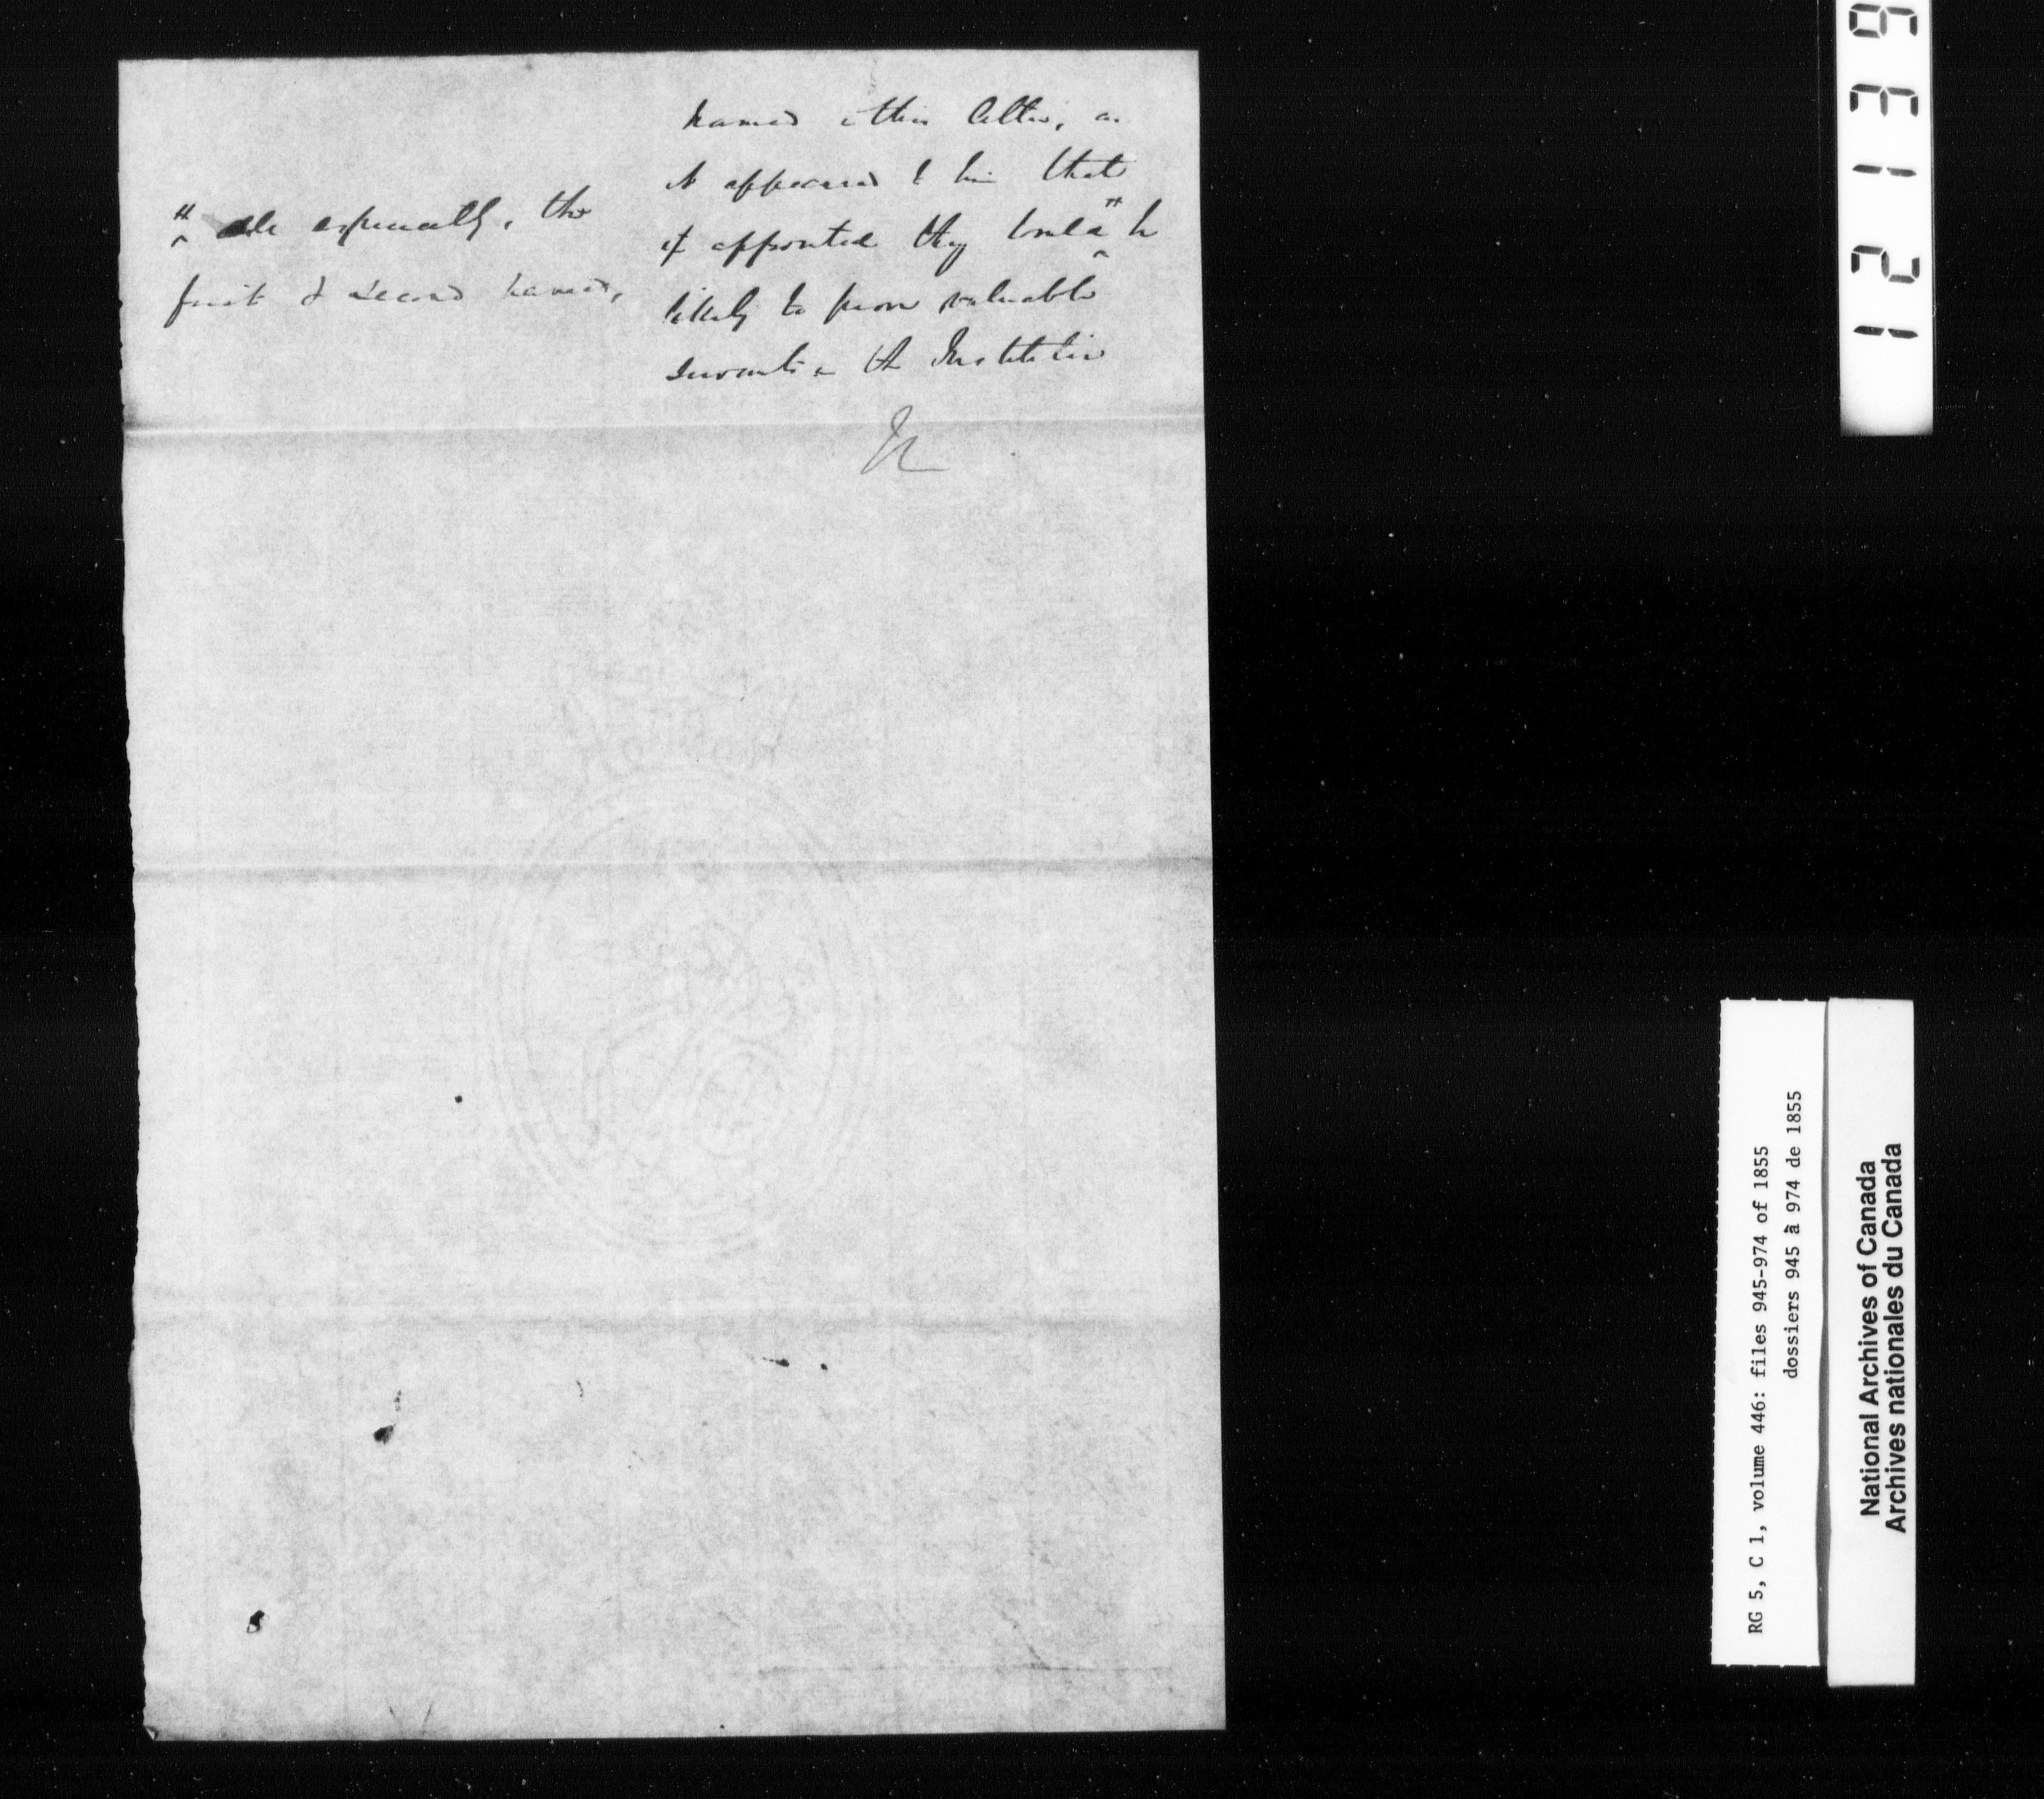 named in this letter, as
it appeared to him that
if appointed they would " be
likely to prove valuable
servants in the Institution
" especially, the
first & second named,
9
3
1
2
1
RG 5, C 1, volume 446: files 945-974 of 1855
dossiers 945 à 974 de 1855
National Archives of Canada
Archives nationales du Canada